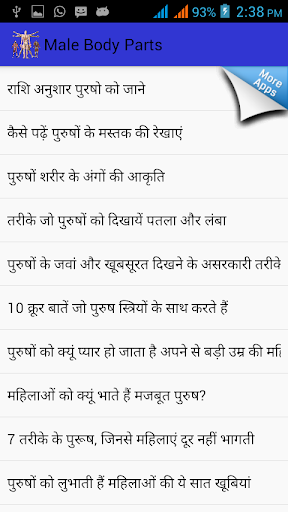 92%
2:38 PM
Male Body Parts
More
Apps
राशि अनुशार पुरषो को जाने
कैसे पढ़ें पुरुषों के मस्तक की रेखाएं
पुरुषों शरीर के अंगों की आकृति
तरीके जो पुरुषों को दिखायें पतला और लंबा
पुरुषों के जवां और खूबसूरत दिखने के असरकारी तरीके
10 क्रूर बातें जो पुरुष स्त्रियों के साथ करते हैं
पुरुषों को क्यूं प्यार हो जाता है अपने से बड़ी उम्र की
महिलाओं को क्यूं भाते हैं मजबूत पुरुष?
7 तरीके के पुरूष, जिनसे महिलाएं दूर नहीं भागती
पुरुषों को लुभाती हैं महिलाओं की ये सात खूबियां